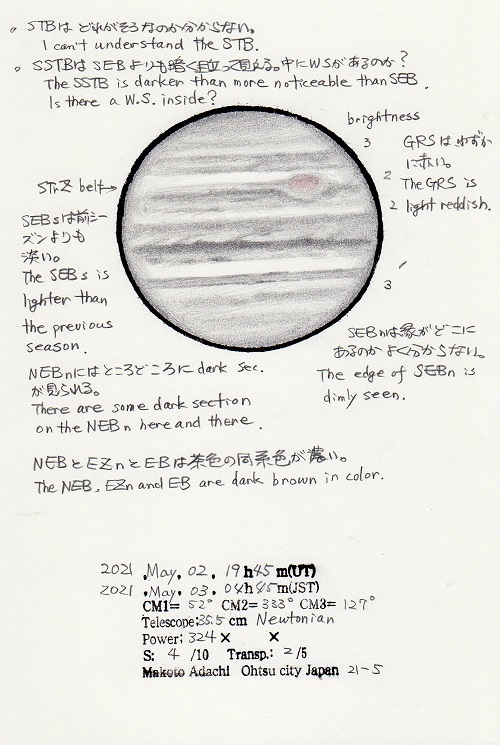 。STBは どれがそうなのか分からない。
I can't understand the STB.
。SSTBはSEBよりも暗く目立って見える。中にWSがあるのか？
The SSTB is darker than more noticeable than SEB.
Is there a W.S. inside?
brightness
3
GRSはわずか
に赤い。
2
The GRS is
2 light reddish.
STrZ belt→
SEBsは前シー
ズンよりも
淡い。
The SEBs is
lighter than
the previous
season.
3
SEBnは縁がどこに
あるのかよく分からない。
The edge of SEBn is
dimly seen.
NEBnにはところどころに dark sec.
が見られる。
There are some dark section
on the NEBn here and there.
NEBとEZnとEBは茶色の同系色が濃い。
The NEB, EZn and EB are dark brown in color.
2021 .May. 02. 19h45m(UT)
2021 .May. 03. 04h45m(JST)
CM1= 52° CM2= 333° CM3= 127°
Telescope:35.5 cm Newtonian
Power: 324 × ×
S: 4 /10 Transp.: 2/5
Makoto Adachi Ohtsu city Japan 21-5